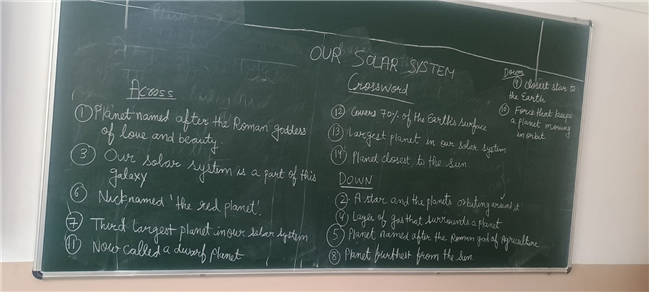 OUR SOLAR SYSTEM
Crossword
Across
① Planet named after the Roman goddess
of love and beauty.
③ Our solar system is a part of this
galaxy
⑥ Nicknamed 'the red planet'.
⑦ Third largest planet in our solar system
⑪ Now called a dwarf planet
⑫ Covers 70% of the Earth's surface
⑬ Largest planet in our solar system
⑭ Planet closest to the sun.
DOWN
② A star and the planets orbiting around it
④ Layer of gas that surrounds a planet
⑤ Planet named after the Roman god of Agriculture
⑧ Planet furthest from the sun.
Down
⑨ closest star to
the Earth
⑩ Force that keeps
a planet moving
in orbit